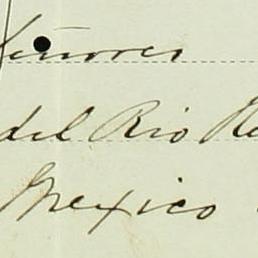 Señores
del Rio
Mexico